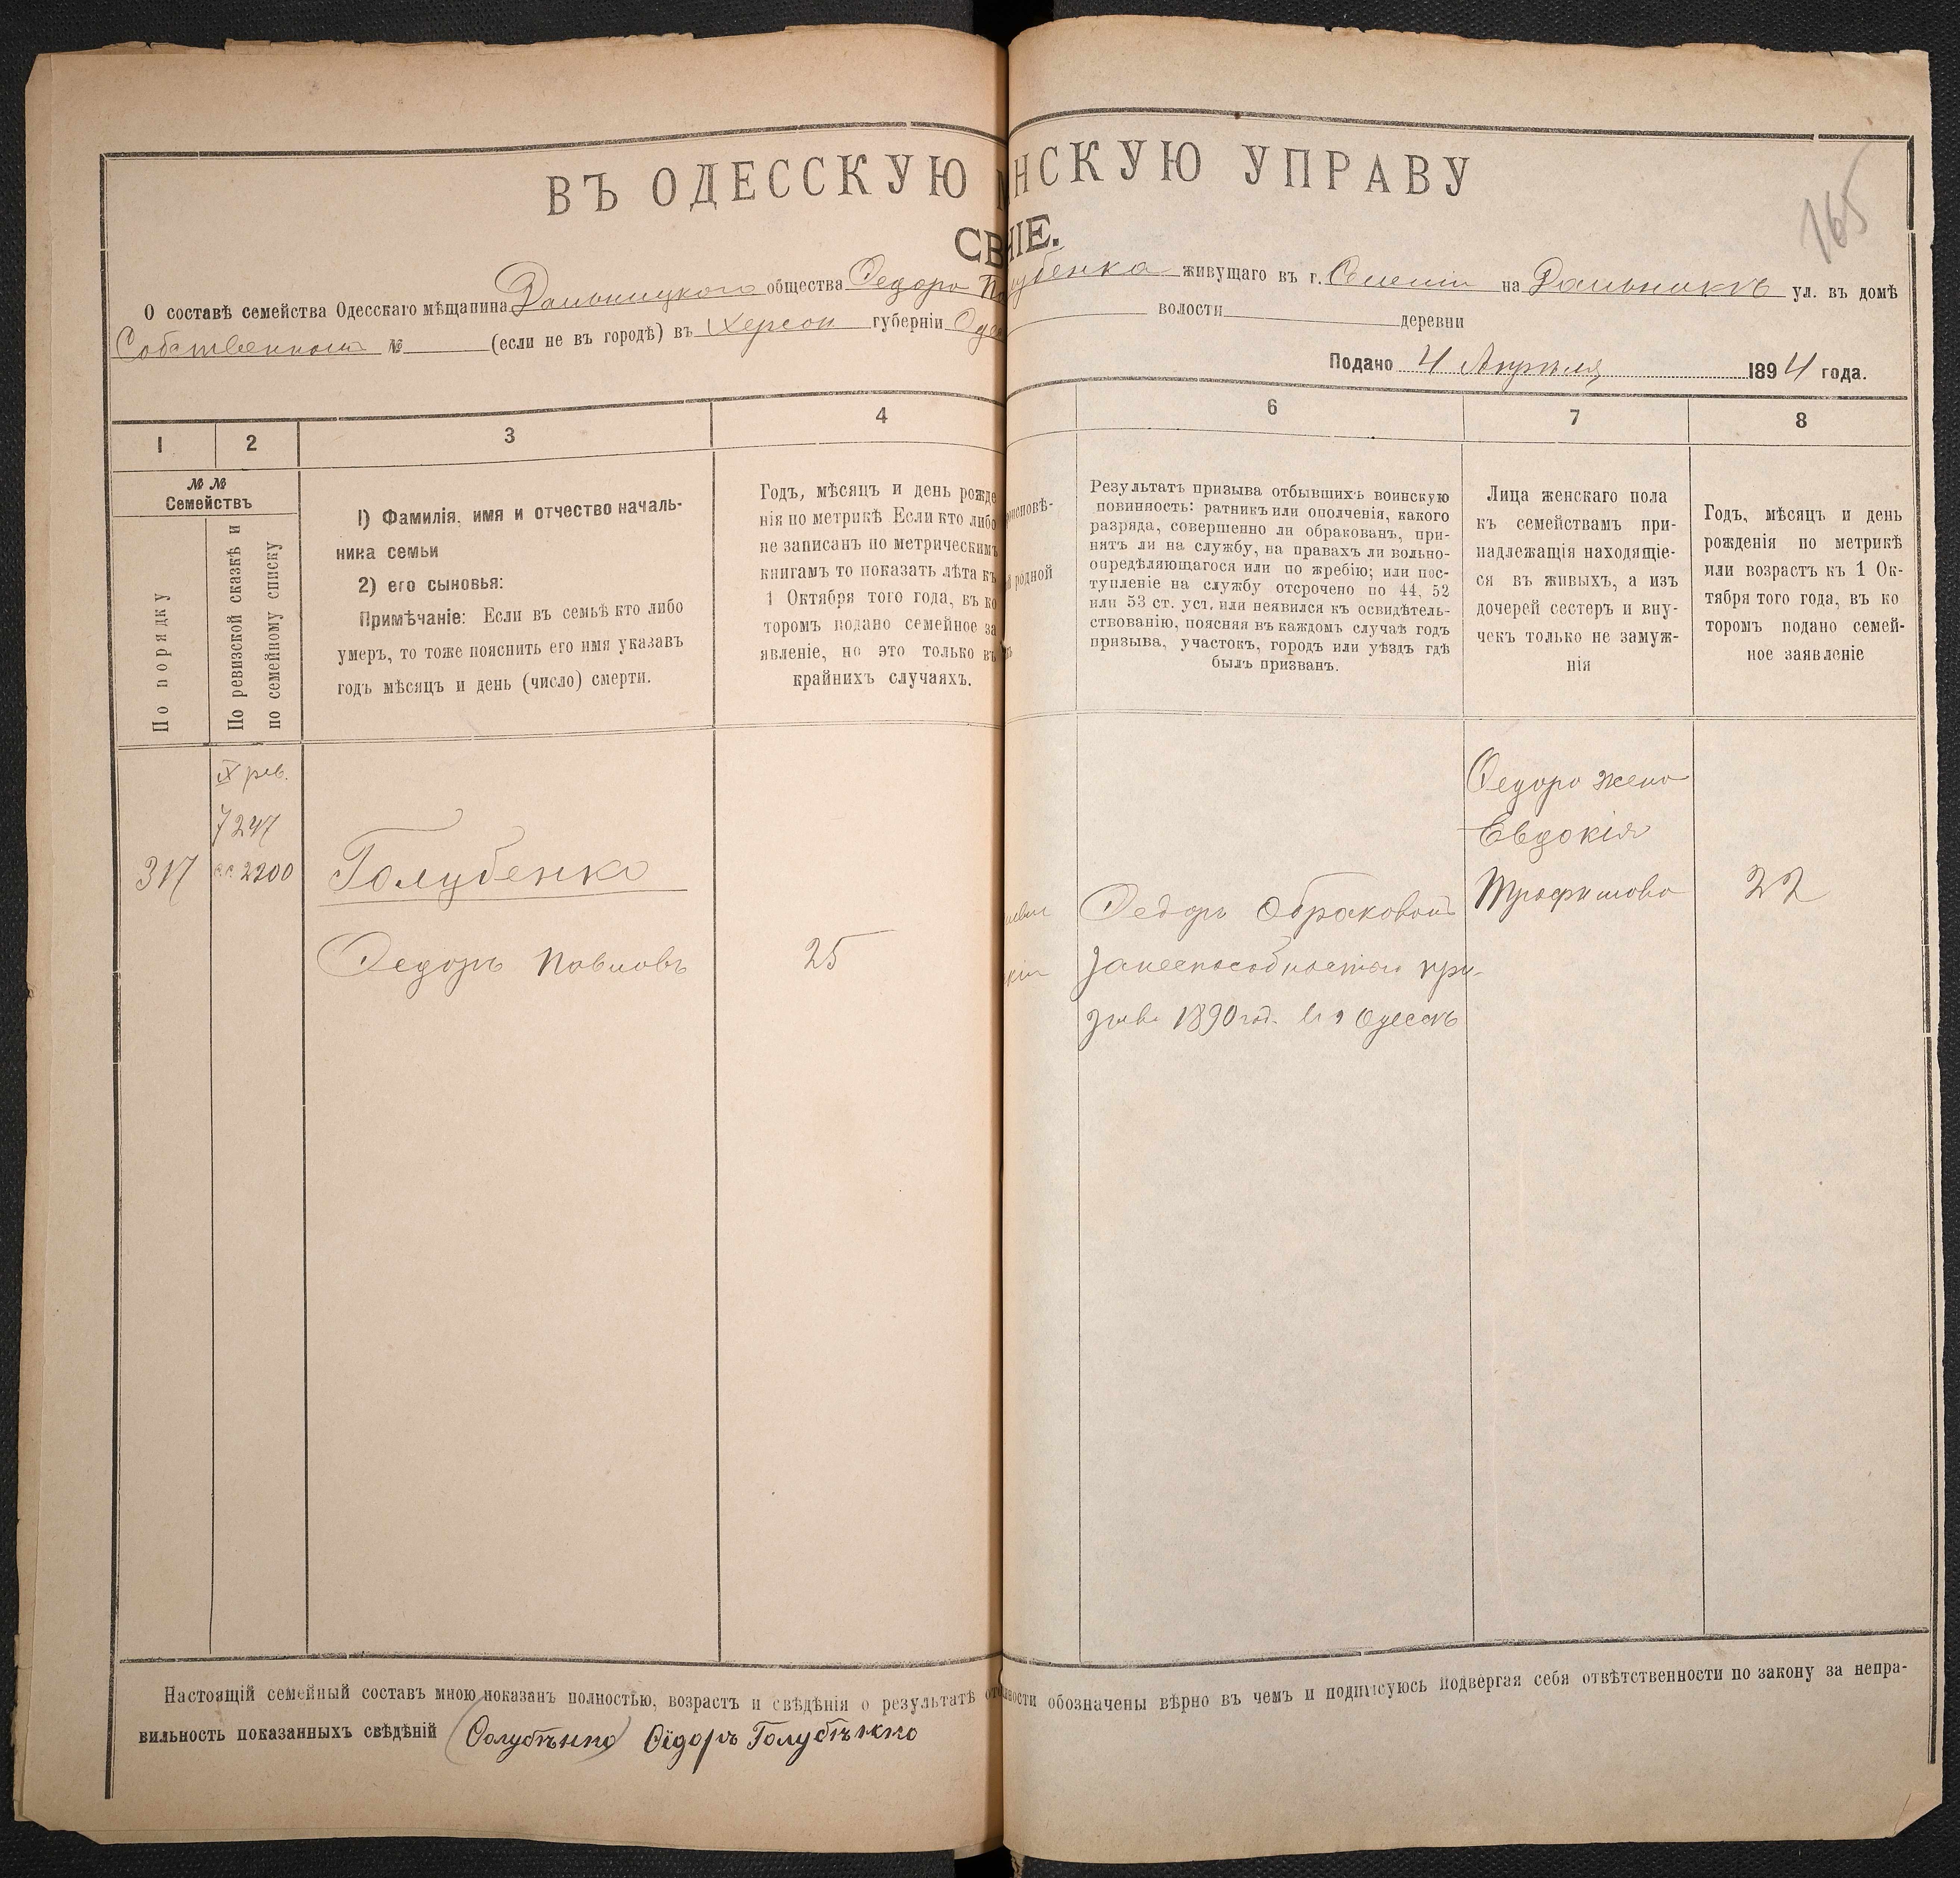 ВЪ ОДЕССКУЮ НСКУЮ УПРАВУ
165
СВ НІЕ.
О составѣ семейства Одесскаго мѣщанина Дальницкого общества Федора Голубенка живущаго въ г. на Дальникъ ул. въ домѣ
Собственномъ № (если не въ городѣ) въ Херсон губерніи Оде волости деревни
Подано 4 Апрѣля 1894 года.
1 2 3 4 6 7 8
№ №
Семействъ
По порядку
По ревизской сказкѣ и
по семейному списку
1) Фамилія, имя и отчество началь-
ника семьи
2) его сыновья:
Примѣчаніе: Если въ семьѣ кто либо
умеръ, то тоже пояснить его имя указавъ
годъ мѣсяцъ и день (число) смерти.
Годъ, мѣсяцъ и день рожде
нія по метрикѣ Если кто либо
не записанъ по метрическимъ
книгамъ то показать лѣта къ
1 Октября того года, въ ко
торомъ подано семейное за
явленіе, но это только въ
крайнихъ случаяхъ.
исповѣ-
й родной
Результатъ призыва отбывшихъ воинскую
повинность: ратникъ или ополченія, какого
разряда, совершенно ли обракованъ, при-
нятъ ли на службу, на правахъ ли вольно-
опредѣляющагося или по жребію; или пос-
тупленіе на службу отсрочено по 44, 52
или 53 ст. уст. или неявился къ освидѣтель-
ствованію, поясняя въ каждомъ случаѣ годъ
призыва, участокъ, городъ или уѣздъ гдѣ
былъ призванъ.
Лица женскаго пола
къ семействамъ при-
надлежащія находящіе-
ся въ живыхъ, а изъ
дочерей сестеръ и вну-
чекъ только не замуж-
нія
Годъ, мѣсяцъ и день
рожденія по метрикѣ
или возрастъ къ 1 Ок-
тября того года, въ ко
торомъ подано семей-
ное заявленіе
IX рев.
7247
317
сс 2200
Голубенко
Федоръ Павловъ
25
Федоръ обракованъ
занеспособностью при-
зыва 1890 год. въ г Одессѣ
Федора жена
Евдокія
Трофимова
22
Настоящій семейный составъ мною показанъ полностью, возрастъ и свѣдѣнія о результатѣ от нности обозначены вѣрно въ чемъ и подписуюсь подвергая себя отвѣтственности по закону за непра-
вильность показанныхъ свѣдѣній (Голубѣнко) Ѳідоръ Голубѣнко